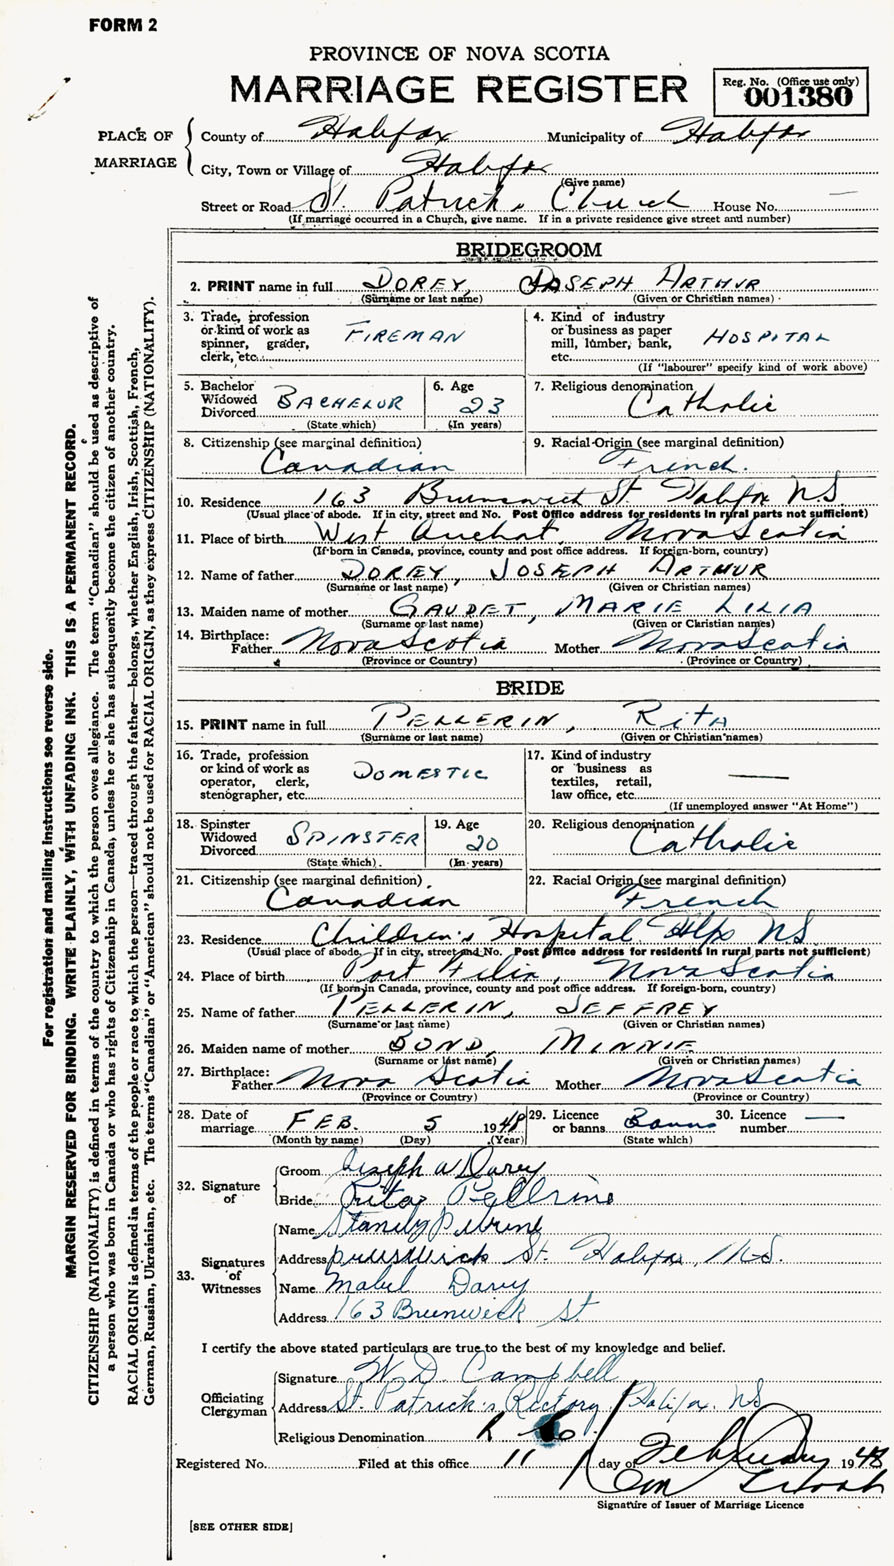 FORM 2
PROVINCE OF NOVA SCOTIA
MARRIAGE REGISTER
Reg. No. (Office use only)
001380
PLACE OF MARRIAGE
County of Halifax Municipality of Halifax
City, Town or Village of Halifax
(Give name)
Street or Road St. Patrick's Church House No. —
(If marriage occurred in a Church, give name. If in a private residence give street and number)
BRIDEGROOM
2. PRINT name in full DOREY, JOSEPH ARTHUR
(Surname or last name) (Given or Christian names)
3. Trade, profession or kind of work as spinner, grader, clerk, etc. FIREMAN
4. Kind of industry or business as paper mill, lumber, bank, etc. HOSPITAL
(If "labourer" specify kind of work above)
5. Bachelor Widowed Divorced BACHELOR
(State which)
6. Age 23
(In years)
7. Religious denomination Catholic
8. Citizenship (see marginal definition) Canadian
9. Racial Origin (see marginal definition) French.
10. Residence 163 Brunswick St. Halifax NS
(Usual place of abode. If in city, street and No. Post Office address for residents in rural parts not sufficient)
11. Place of birth West Arichat, Nova Scotia
(If born in Canada, province, county and post office address. If foreign-born, country)
12. Name of father DOREY, JOSEPH ARTHUR
(Surname or last name) (Given or Christian names)
13. Maiden name of mother GAUDET, MARIE LILIA
(Surname or last name) (Given or Christian names)
14. Birthplace: Father Nova Scotia Mother Nova Scotia
(Province or Country) (Province or Country)
BRIDE
15. PRINT name in full PELLERIN, RITA
(Surname or last name) (Given or Christian names)
16. Trade, profession or kind of work as operator, clerk, stenographer, etc. DOMESTIC
17. Kind of industry or business as textiles, retail, law office, etc. —
(If unemployed answer "At Home")
18. Spinster Widowed Divorced SPINSTER
(State which)
19. Age 20
(In years)
20. Religious denomination Catholic
21. Citizenship (see marginal definition) Canadian
22. Racial Origin (see marginal definition) French
23. Residence Children's Hospital Hlfx NS
(Usual place of abode. If in city, street and No. Post Office address for residents in rural parts not sufficient)
24. Place of birth Port Felix, Nova Scotia
(If born in Canada, province, county and post office address. If foreign-born, country)
25. Name of father PELLERIN, JEFFREY
(Surname or last name) (Given or Christian names)
26. Maiden name of mother BOND, MINNIE
(Surname or last name) (Given or Christian names)
27. Birthplace: Father Nova Scotia Mother Nova Scotia
(Province or Country) (Province or Country)
28. Date of marriage FEB. 5 1948
(Month by name) (Day) (Year)
29. Licence or banns Banns
(State which)
30. Licence number —
32. Signature of
Groom Joseph A Darey
Bride Rita Pellrine
33. Signatures of Witnesses
Name Stanely
Address St. Halifax, N.S.
Name Mabel Darey
Address 163 Brunswick St
I certify the above stated particulars are true to the best of my knowledge and belief.
Officiating Clergyman
Signature W. D. Campbell
Address St. Patrick's Rectory, Halifax. NS
Religious Denomination R
Registered No. Filed at this office 11 day of February 1948
Signature of Issuer of Marriage Licence
[SEE OTHER SIDE]
For registration and mailing instructions see reverse side.
MARGIN RESERVED FOR BINDING. WRITE PLAINLY, WITH UNFADING INK. THIS IS A PERMANENT RECORD.
CITIZENSHIP (NATIONALITY) is defined in terms of the country to which the person owes allegiance. The term "Canadian" should be used as descriptive of
a person who was born in Canada or who has rights of Citizenship in Canada, unless he or she has subsequently become the citizen of another country.
RACIAL ORIGIN is defined in terms of the people or race to which the person—traced through the father—belongs, whether English, Irish, Scottish, French,
German, Russian, Ukrainian, etc. The terms "Canadian" or "American" should not be used for RACIAL ORIGIN, as they express CITIZENSHIP (NATIONALITY).